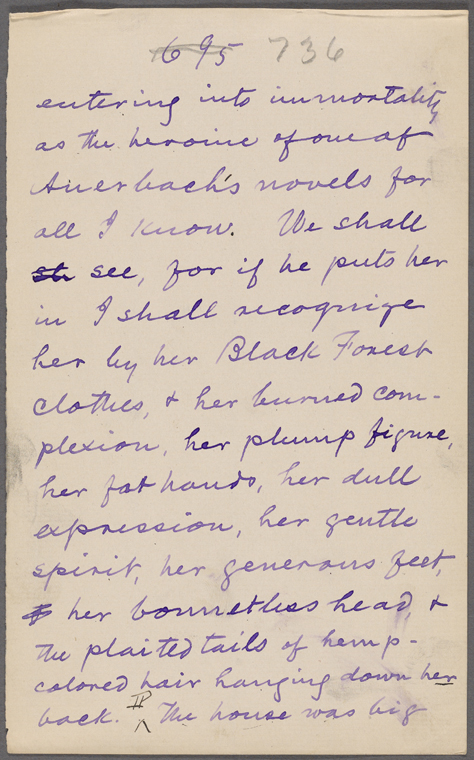 695 736
entering into immortality
as the heroine of one of
Auerbach's novels for
all I know. We shall
sh see, for if he puts her
in I shall recognize
her by her Black Forest
clothes, & her burned com-
plexion, her plump figure,
her fat hands, her dull
expression, her gentle
spirit, her generous feet,
her bonnetless head, &
the plaited tails of hemp-
colored hair hanging down her
back. ¶ The house was big